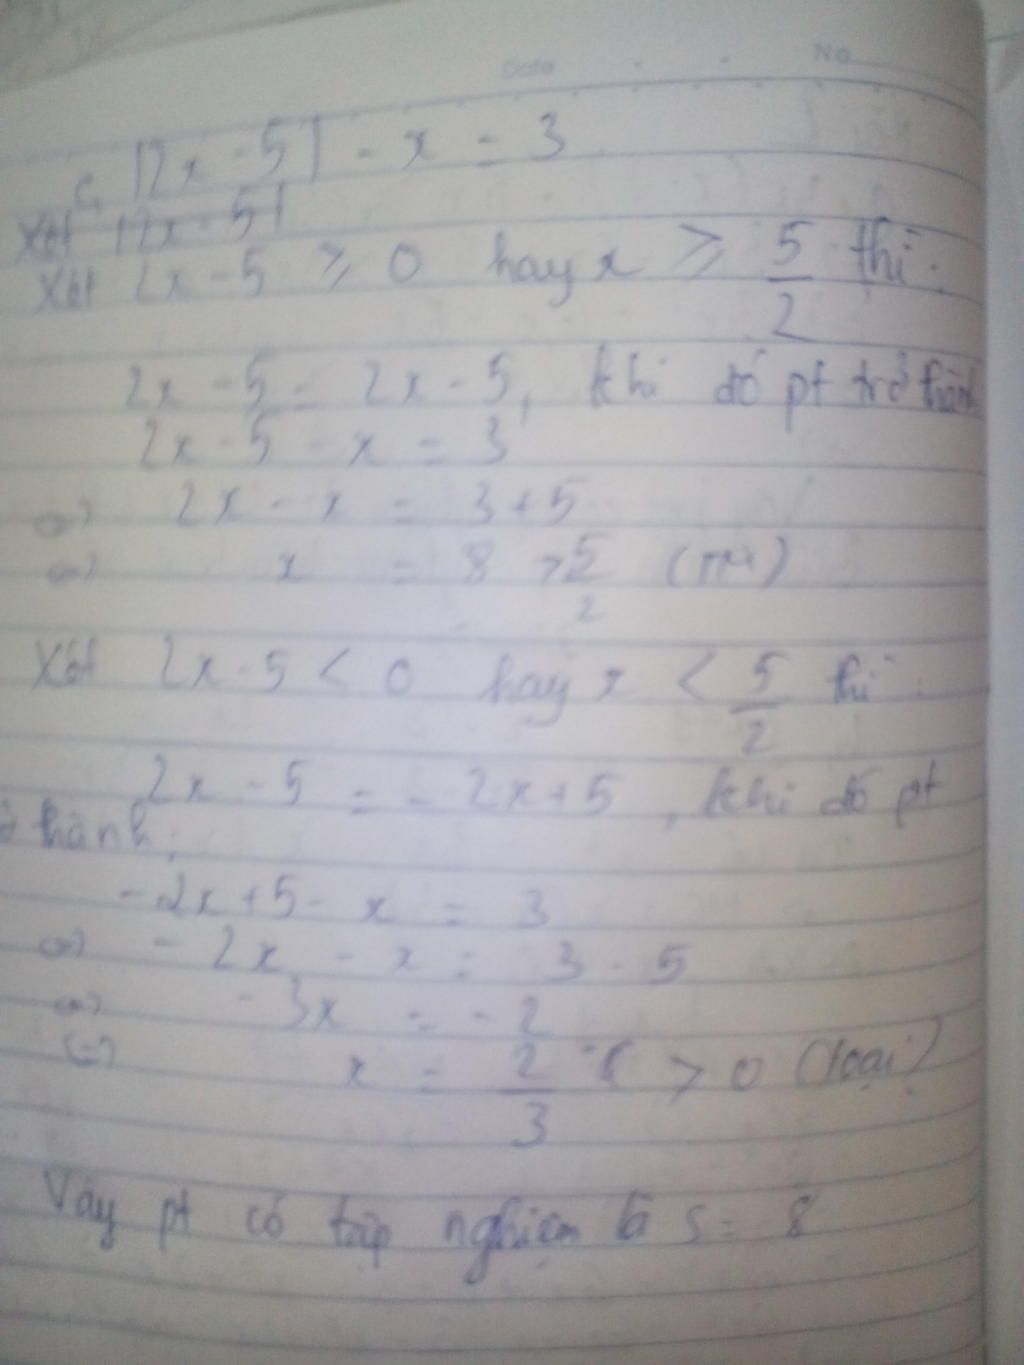 Date No
c, |2x - 5| - x = 3
Xét |2x - 5|
Xét 2x - 5 ≥ 0 hay x ≥ 5/2 thì:
2x - 5 = 2x - 5, khi đó pt trở thành
2x - 5 - x = 3
<=> 2x - x = 3 + 5
<=> x = 8 > 5/2 (TM)
Xét 2x - 5 < 0 hay x < 5/2 thì:
2x - 5 = - 2x + 5, khi đó pt
ở thành:
- 2x + 5 - x = 3
<=> - 2x - x = 3 - 5
<=> - 3x = - 2
<=> x = 2/3 > 0 (loại)
Vậy pt có tập nghiệm là S = 8